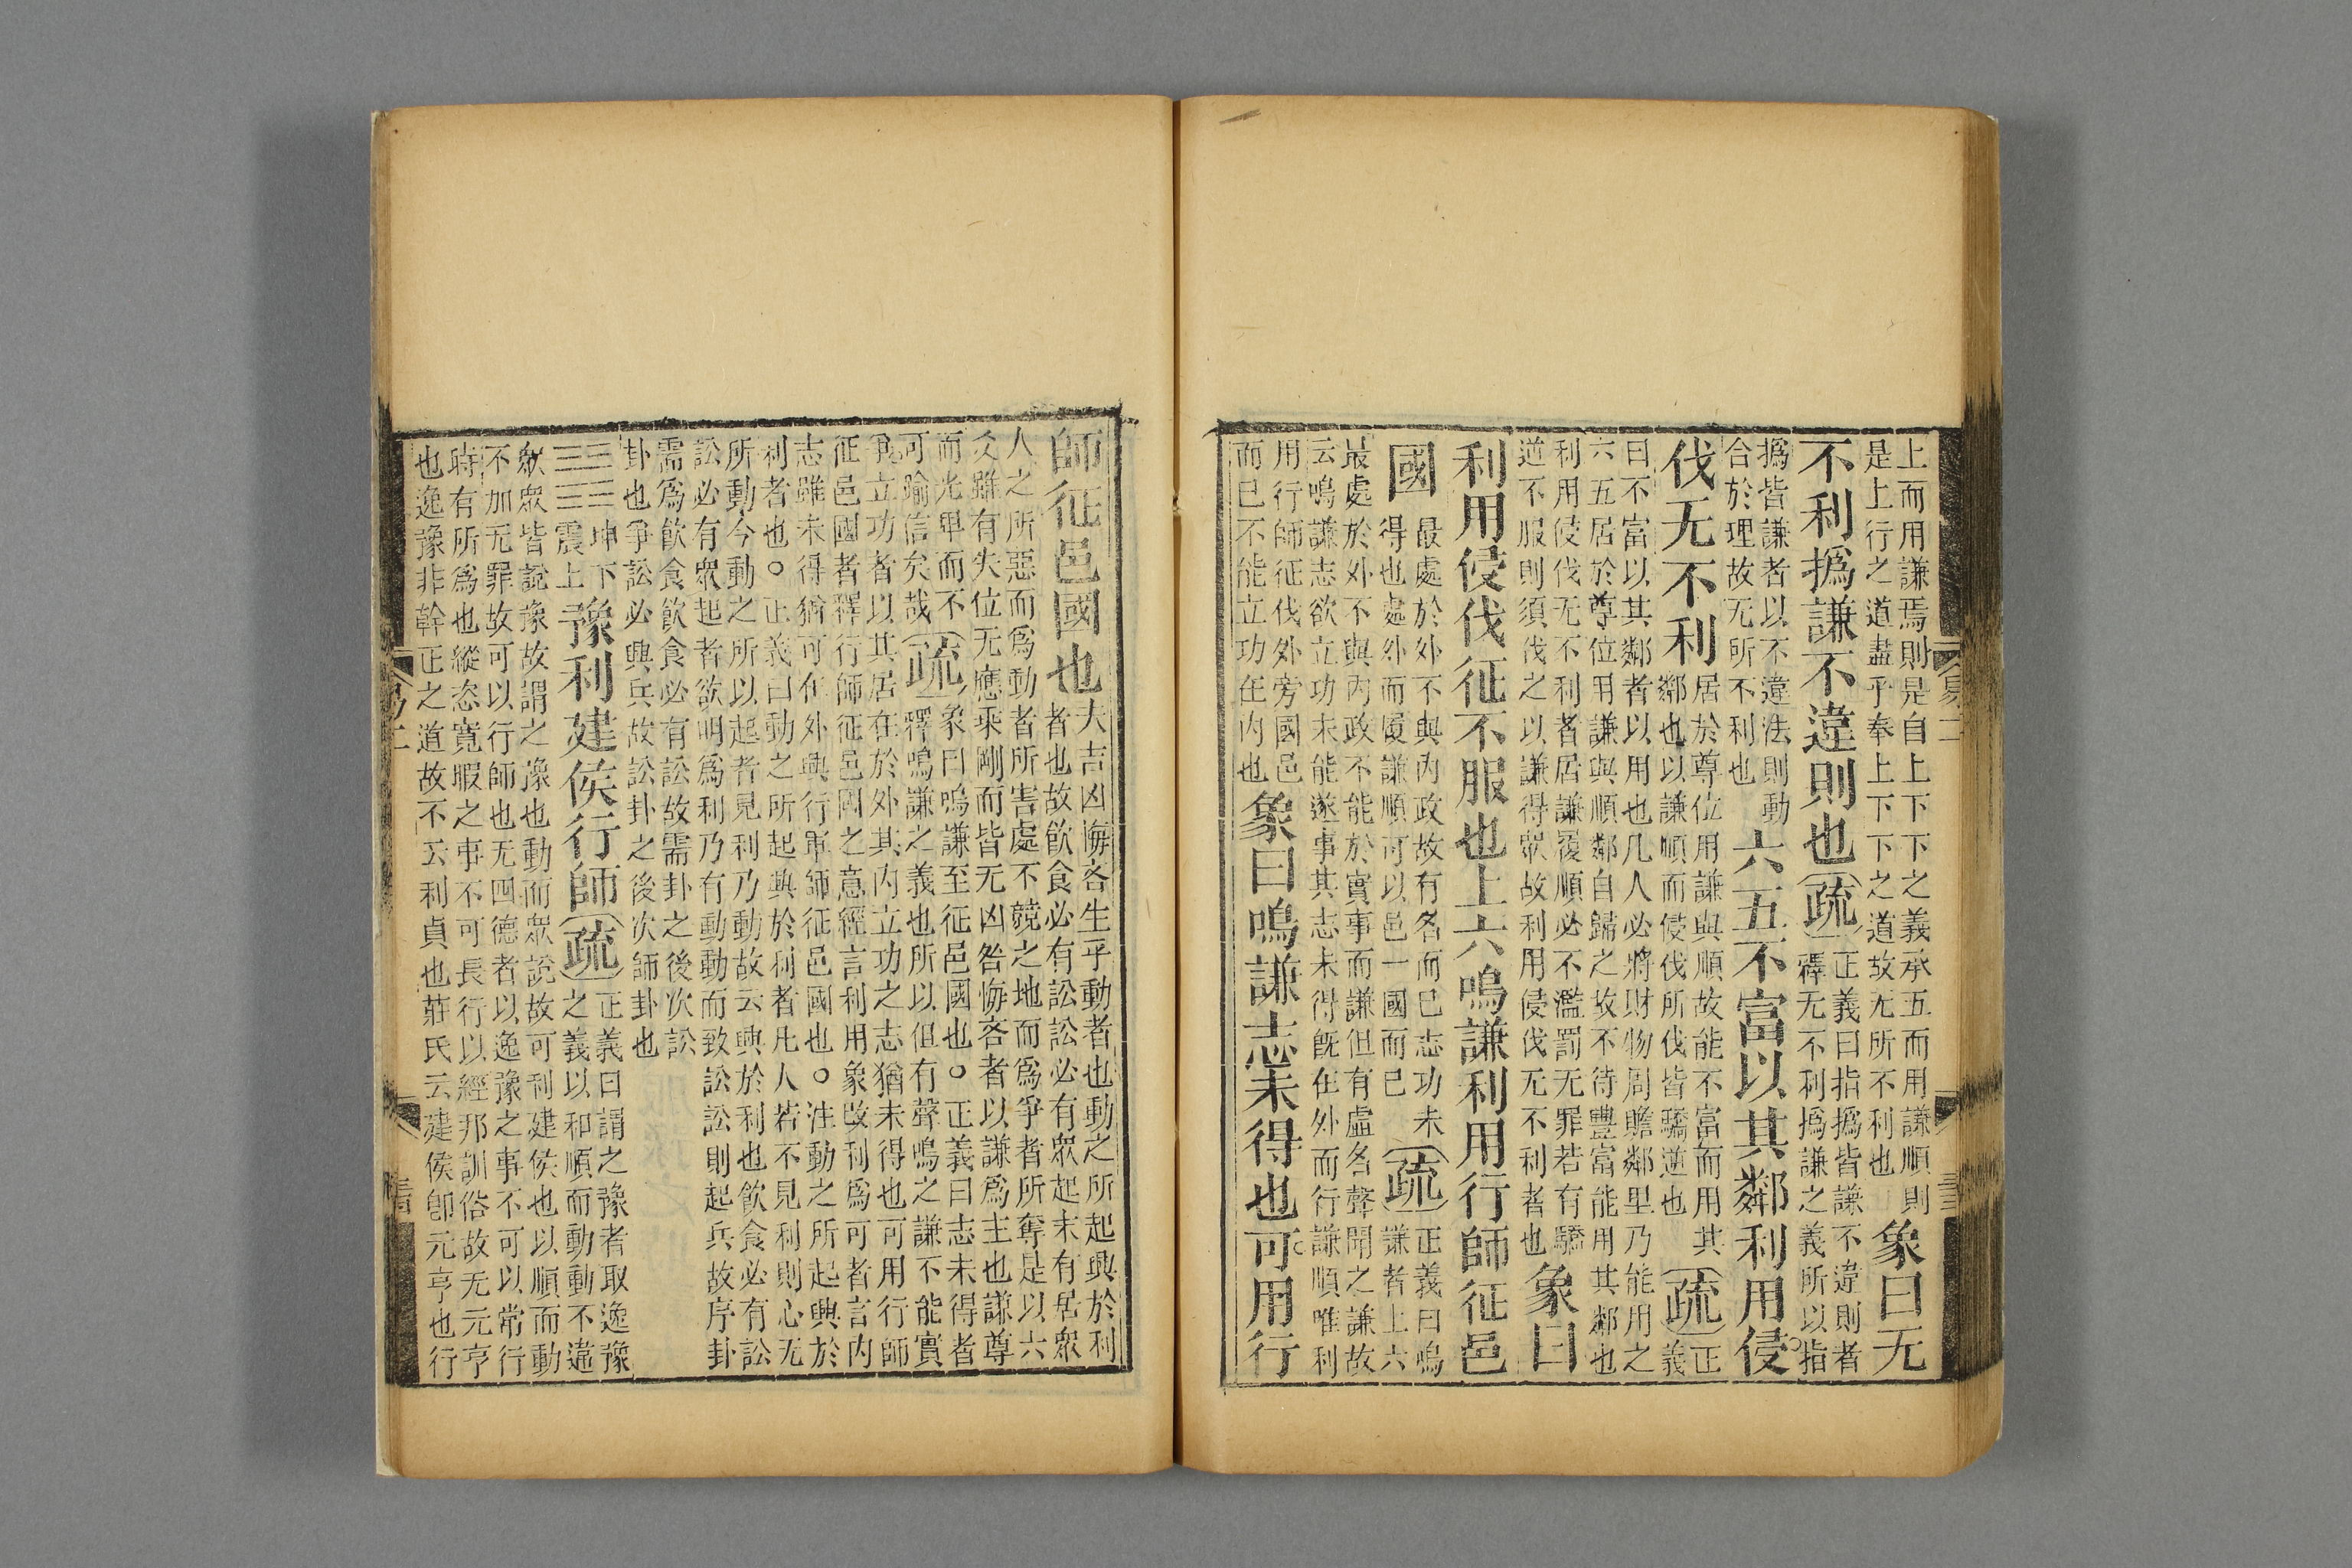 上而用謙焉則是自上下下之義承五而用謙順則
是上行之道盡乎奉上下下之道故无所不利也
象曰无
不利撝謙不違則也
疏
正義曰指撝皆謙不違則者
釋无不利撝謙之義所以指
撝皆謙者以不違法則動
合於理故无所不利也
六五不富以其鄰利用侵
伐无不利
居於尊位用謙與順故能不富而用其
鄰也以謙順而侵伐所伐皆驕逆也
疏
正
義
曰不富以其鄰者以用也凡人必將財物周贍鄰里乃能用之
六五居於尊位用謙與順鄰自歸之故不待豐富能用其鄰也
利用侵伐无不利者居謙履順必不濫罰无罪若有驕
逆不服則須伐之以謙得眾故利用侵伐无不利者也
象曰
利用侵伐征不服也上六鳴謙利用行師征邑
國
最處於外不與內政故有名而已志功未
得也處外而履謙順可以邑一國而已
疏
正義曰鳴
謙者上六
最處於外不與內政不能於實事而謙但有虛名聲聞之謙故
云鳴謙志欲立功未能遂事其志未得既在外而行謙順唯利
用行師征伐外旁國邑
而已不能立功在內也
象曰鳴謙志未得也可用行
易二
師征邑國也
夫吉凶悔吝生乎動者也動之所起興於利
者也故飲食必有訟訟必有眾起未有居眾
人之所惡而爲動者所害處不競之地而爲爭者所奪是以六
爻雖有失位无應乘剛而皆无凶咎悔吝者以謙爲主也謙尊
而光卑而不
可踰信矣哉
疏
象曰鳴謙至征邑國也○正義曰志未得者
釋鳴謙之義也所以但有聲鳴之謙不能實
爭立功者以其居在於外其內立功之志猶未得也可用行師
征邑國者釋行師征邑國之意經言利用象改利爲可者言內
志雖未得猶可在外興行軍師征邑國也○注動之所起興於
利者也○正義曰動之所起興於利者凡人若不見利則心无
所動今動之所以起者見利乃動故云興於利也飲食必有訟
訟必有眾起者欲明爲利乃有動動而致訟訟則起兵故序卦
需爲飲食飲食必有訟故需卦之後次訟
卦也爭訟必興兵故訟卦之後次師卦也
坤下
震上
豫利建侯行師
疏
正義曰謂之豫者取逸豫
之義以和順而動動不違
眾眾皆說豫故謂之豫也動而眾說故可利建侯也以順而動
不加无罪故可以行師也无四德者以逸豫之事不可以常行
時有所爲也縱恣寬暇之事不可長行以經邦訓俗故无元亨
也逸豫非幹正之道故不云利貞也莊氏云建侯即元亨也行
易二